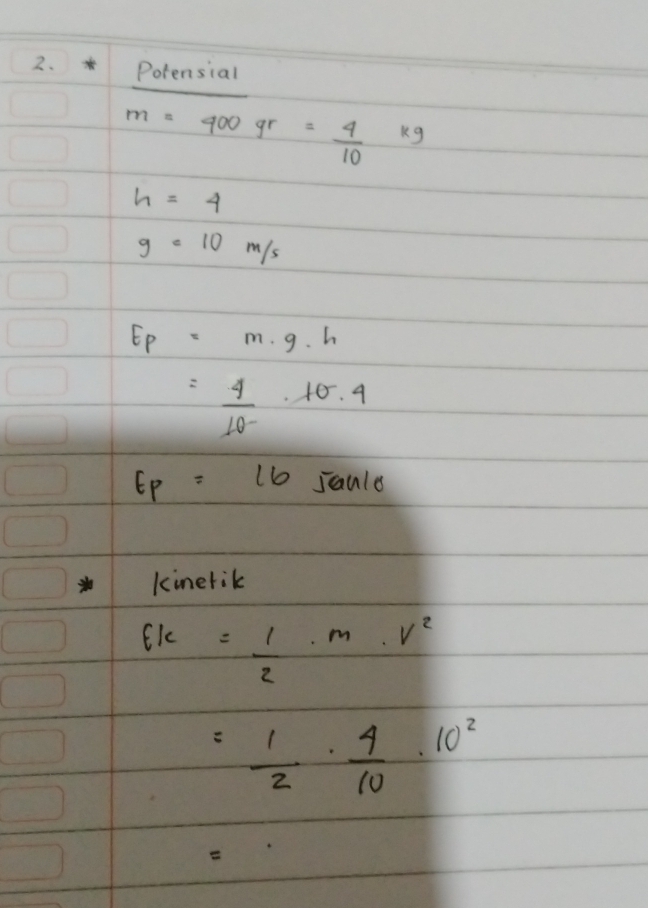 2. * Potensial
m = 400 gr = 4/10 kg
h = 4
g = 10 m/s
Ep = m.g.h
= 4/10 . 10 . 4
Ep = 16 Joule
* Kinetik
Ek = 1/2 . m . V²
= 1/2 . 4/10 . 10²
=